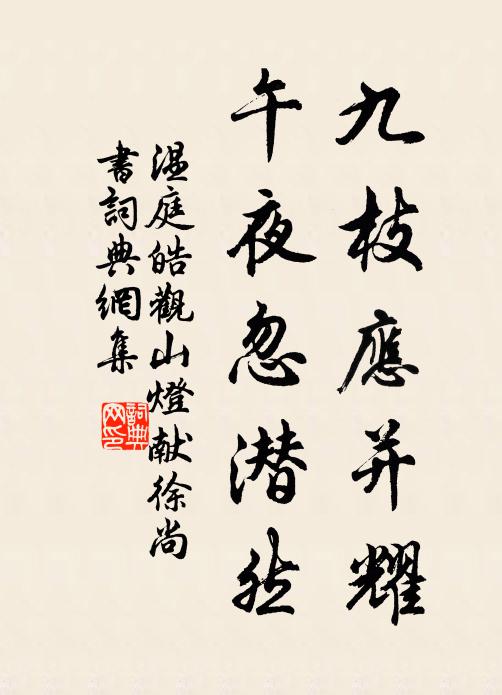 九枝應并耀
午夜忽潜然
温庭皓觀山燈献徐尚
書詞典網集
詞典网印